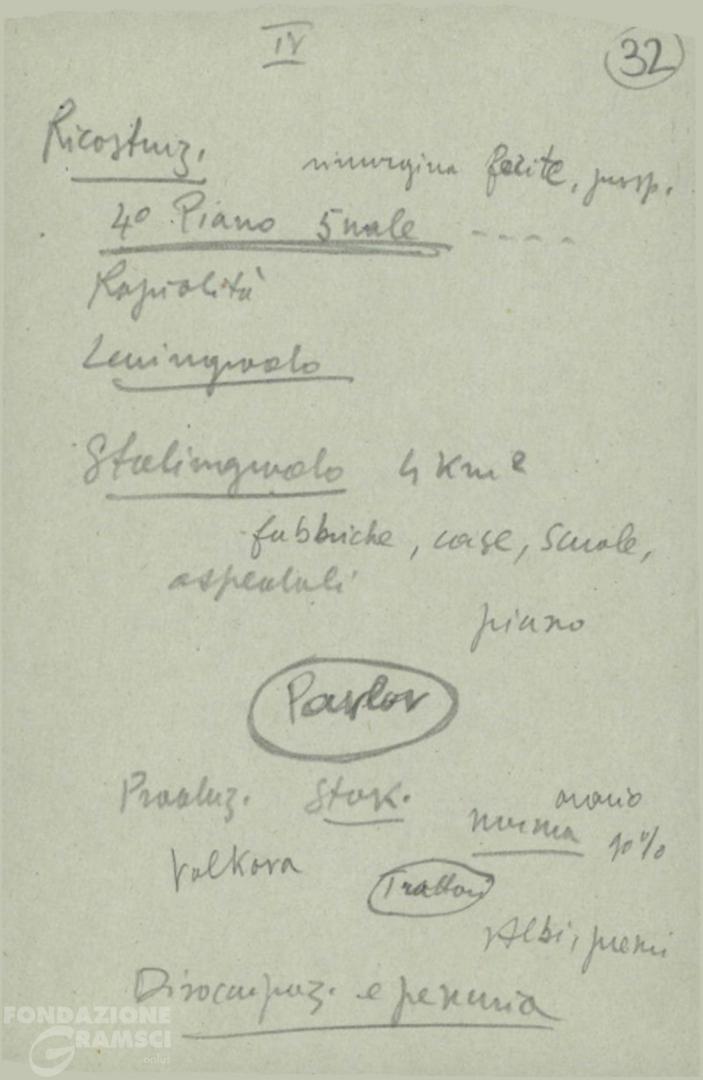 IV
32
Ricostruz. rimargina ferite, prosp.
4º Piano 5nale ----
Rapidità
Leningrado
Stalingrado 4 Km²
fabbriche, case, scuole,
ospedali
piano
Pavlov
Produz. Stak. orario
norma 10%
Volkova Trattori
Albi, premi
Disoccupaz. e penuria
FONDAZIONE
GRAMSCI
onlus